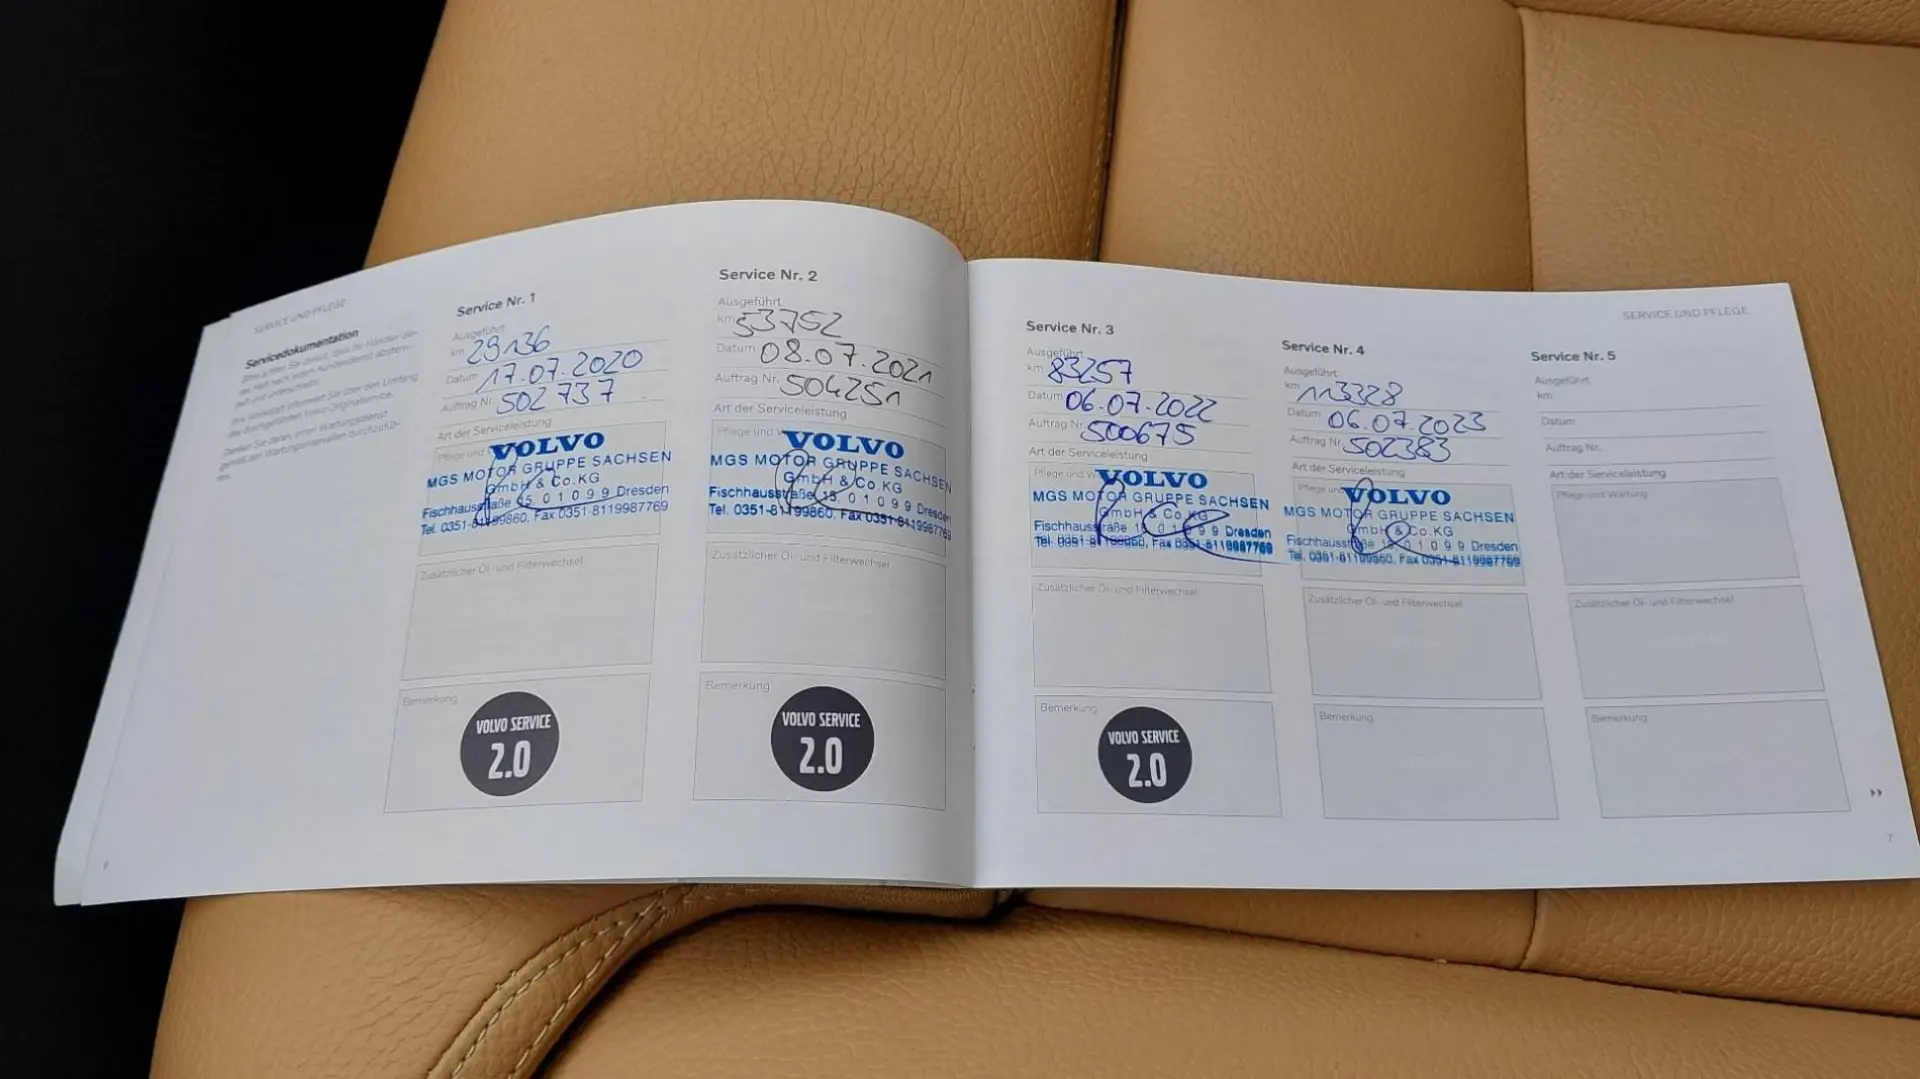 SERVICE UND PFLEGE
Servicedokumentation
Service Nr. 1
Ausgeführt
km 29136
Datum 17.07.2020
Auftrag Nr. 502737
Art der Serviceleistung
Pflege und
VOLVO
MGS MOTOR GRUPPE SACHSEN
GmbH & Co.KG
Fischhausstraße 15, 01099 Dresden
Tel. 0351-81199860, Fax 0351-8119987769
Zusätzlicher Öl- und Filterwechsel
Bemerkung
VOLVO SERVICE
2.0
6
Service Nr. 2
Ausgeführt
km 53752
Datum 08.07.2021
Auftrag Nr. 504251
Art der Serviceleistung
Pflege und W
VOLVO
MGS MOTOR GRUPPE SACHSEN
GmbH & Co.KG
Fischhausstraße 15, 01099 Dresden
Tel. 0351-81199860, Fax 0351-8119987769
Zusätzlicher Öl- und Filterwechsel
Bemerkung
VOLVO SERVICE
2.0
SERVICE UND PFLEGE
Service Nr. 3
Ausgeführt
km 83257
Datum 06.07.2022
Auftrag Nr. 500675
Art der Serviceleistung
Pflege und W
VOLVO
MGS MOTOR GRUPPE SACHSEN
GmbH & Co.KG
Fischhausstraße 15, 01099 Dresden
Tel. 0351-81199860, Fax 0351-8119987769
Zusätzlicher Öl- und Filterwechsel
Bemerkung
VOLVO SERVICE
2.0
Service Nr. 4
Ausgeführt
km 113328
Datum 06.07.2023
Auftrag Nr. 502383
Art der Serviceleistung
Pflege und
VOLVO
MGS MOTOR GRUPPE SACHSEN
GmbH & Co.KG
Fischhausstraße 15, 01099 Dresden
Tel. 0351-81199860, Fax 0351-8119987769
Zusätzlicher Öl- und Filterwechsel
Bemerkung
Service Nr. 5
Ausgeführt
km
Datum
Auftrag Nr.
Art der Serviceleistung
Pflege und Wartung
Zusätzlicher Öl- und Filterwechsel
Bemerkung
7